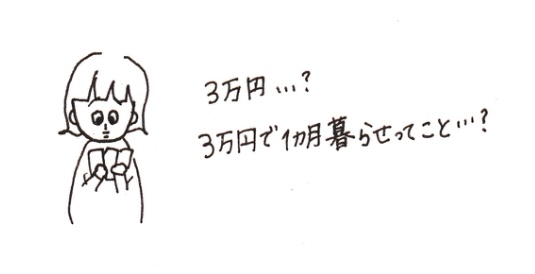 3万円…?
3万円で1ヵ月暮らせってこと…?